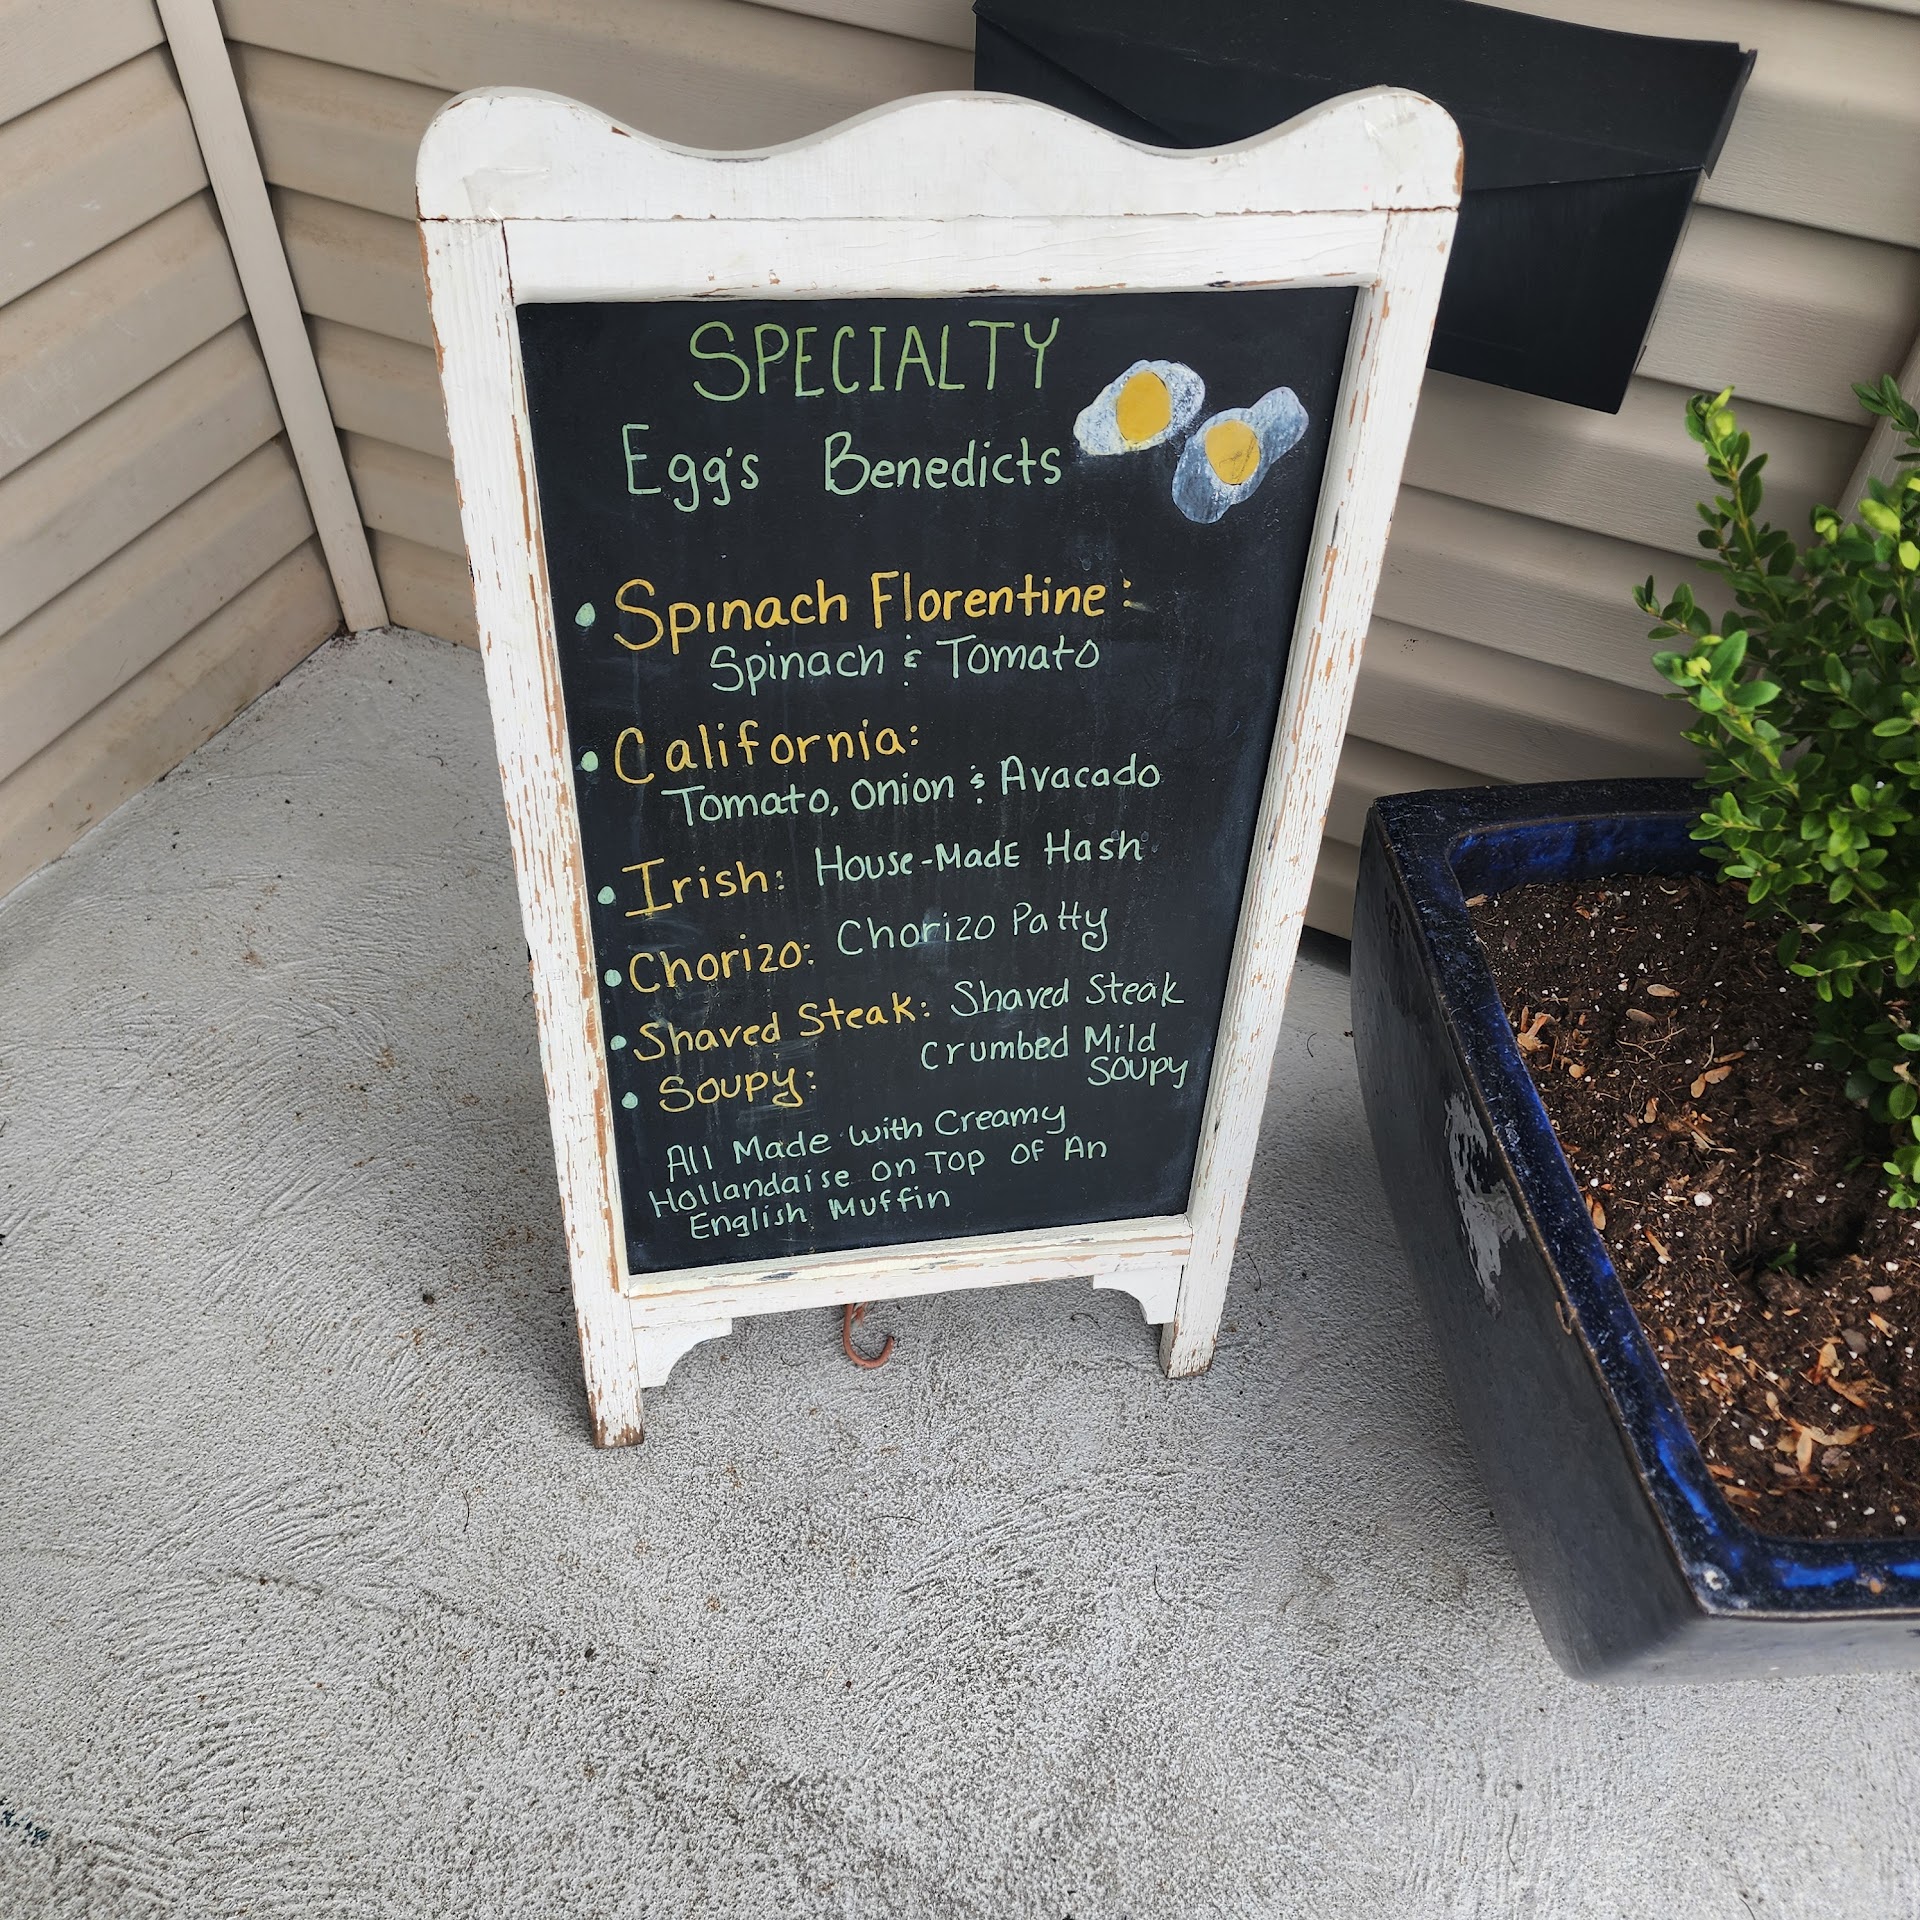 SPECIALTY
Egg's Benedicts
• Spinach Florentine:
Spinach & Tomato
• California:
Tomato, Onion & Avacado
• Irish: House-Made Hash
• Chorizo: Chorizo Patty
• Shaved Steak: Shaved Steak
• Soupy: Crumbed Mild Soupy
All Made with Creamy
Hollandaise on Top of An
English Muffin